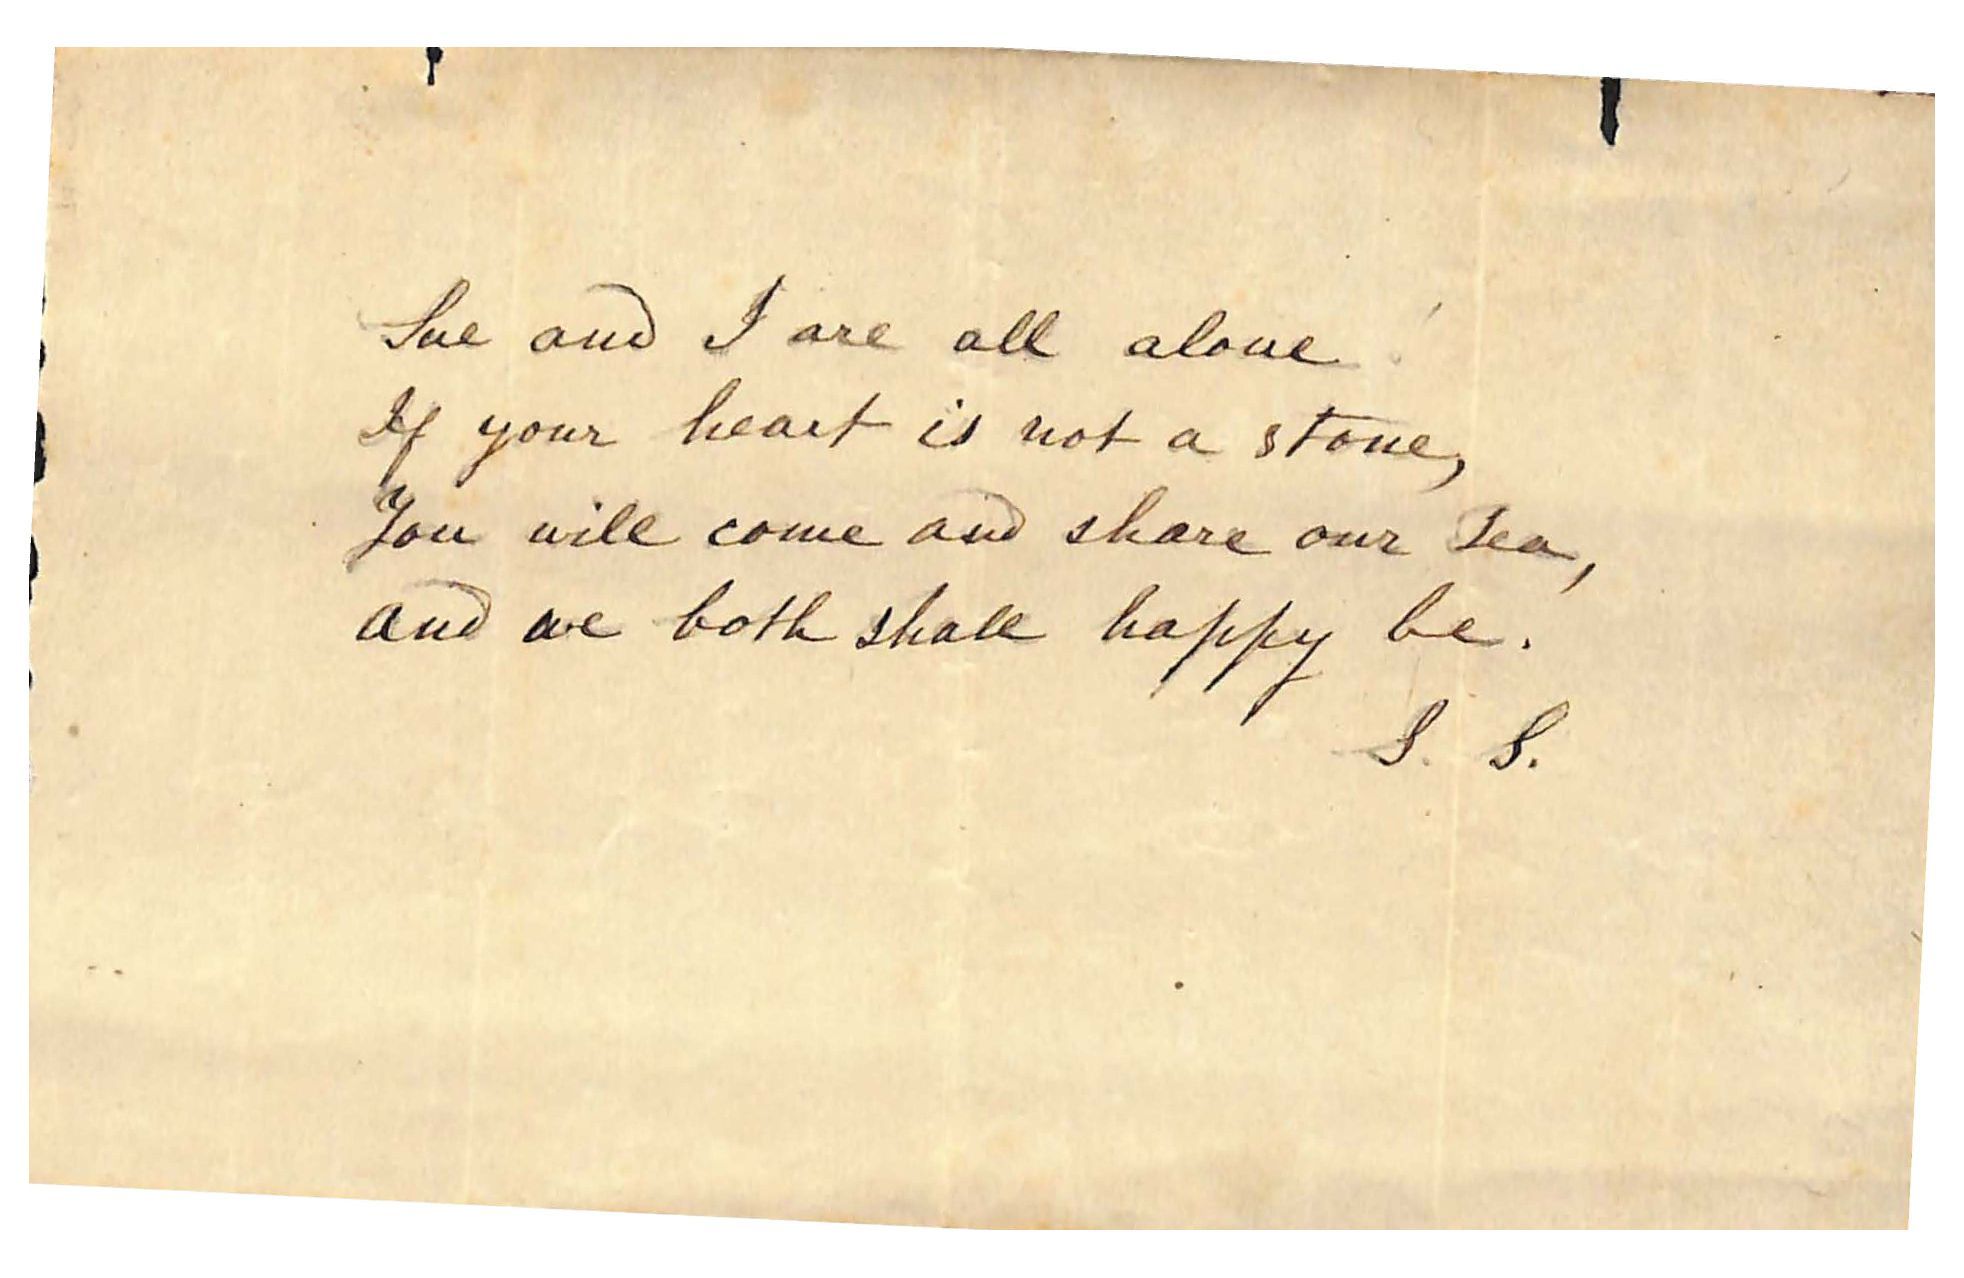 Sue and I are all alone
If your heart is not a stone,
You will come and share our tea,
And we both shall happy be.
S. S.